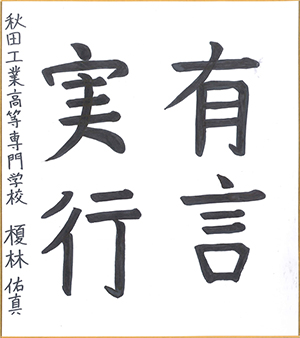 有言
実行
秋田工業高等専門学校 榎林 佑真